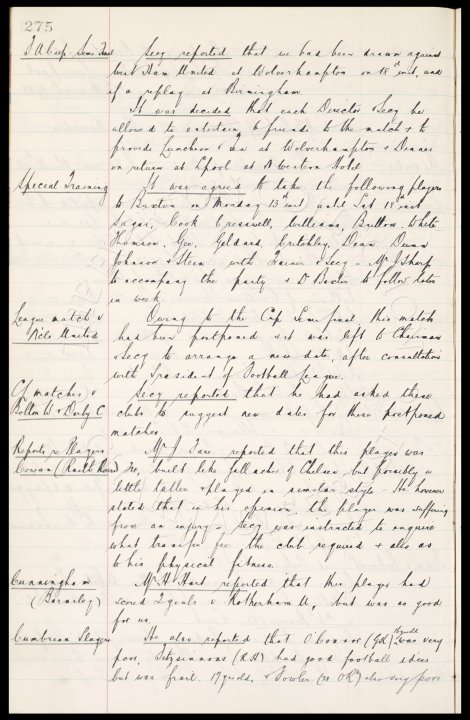 275
F A Cup Semi Final
Secy reported that we had been drawn against
West Ham United at Wolverhampton on 18th inst, and
if a replay at Birmingham.
It was decided that each Director & Secy be
allowed to entertain 6 friends to the match & to
provide Luncheon & tea at Wolverhampton & Dinner
on return at Lpool at N Western Hotel
Special Training
It was agreed to take the following players
to Buxton on Monday 13th until Sat 18th inst
Sagar, Cook Cresswell, Williams, Britton, White
Thomson, Gee, Geldard, Critchley, Dean Dunn
Johnson & Stein with Trainer & Secy - Mr J Sharp
to accompany the party & D Baxter to follow later
in week.
League match v
Nclo United
Owing to the Cup Semi final, this match
had been postponed & it was left to Chairman
& Secy to arrange a new date, after consultation
with President of Football League.
CL matches v
Bolton W & Derby C
Secy reported that he had asked these
clubs to suggest new dates for these postponed
matches.
Reports re Players
Cowan (Raith Rovers)
Mr J Fare reported that this player was
built like Gallacher of Chelsea, but possibly a
little taller & played in similar style. He however
stated that in his opinion the player was suffering
from an injury - Secy was instructed to enquire
what transfer fee the club required & also as
to his physical fitness.
Cunningham
(Barnsley)
Mr H Hart reported that this player had
scored 2 goals v Rotherham U, but was no good
for us.
Cumbrian Players
He also reported that O'Connor (GK) was very
poor, Fitzsimmons (RH) had good football ideas
but was frail. & Fowler also very poor